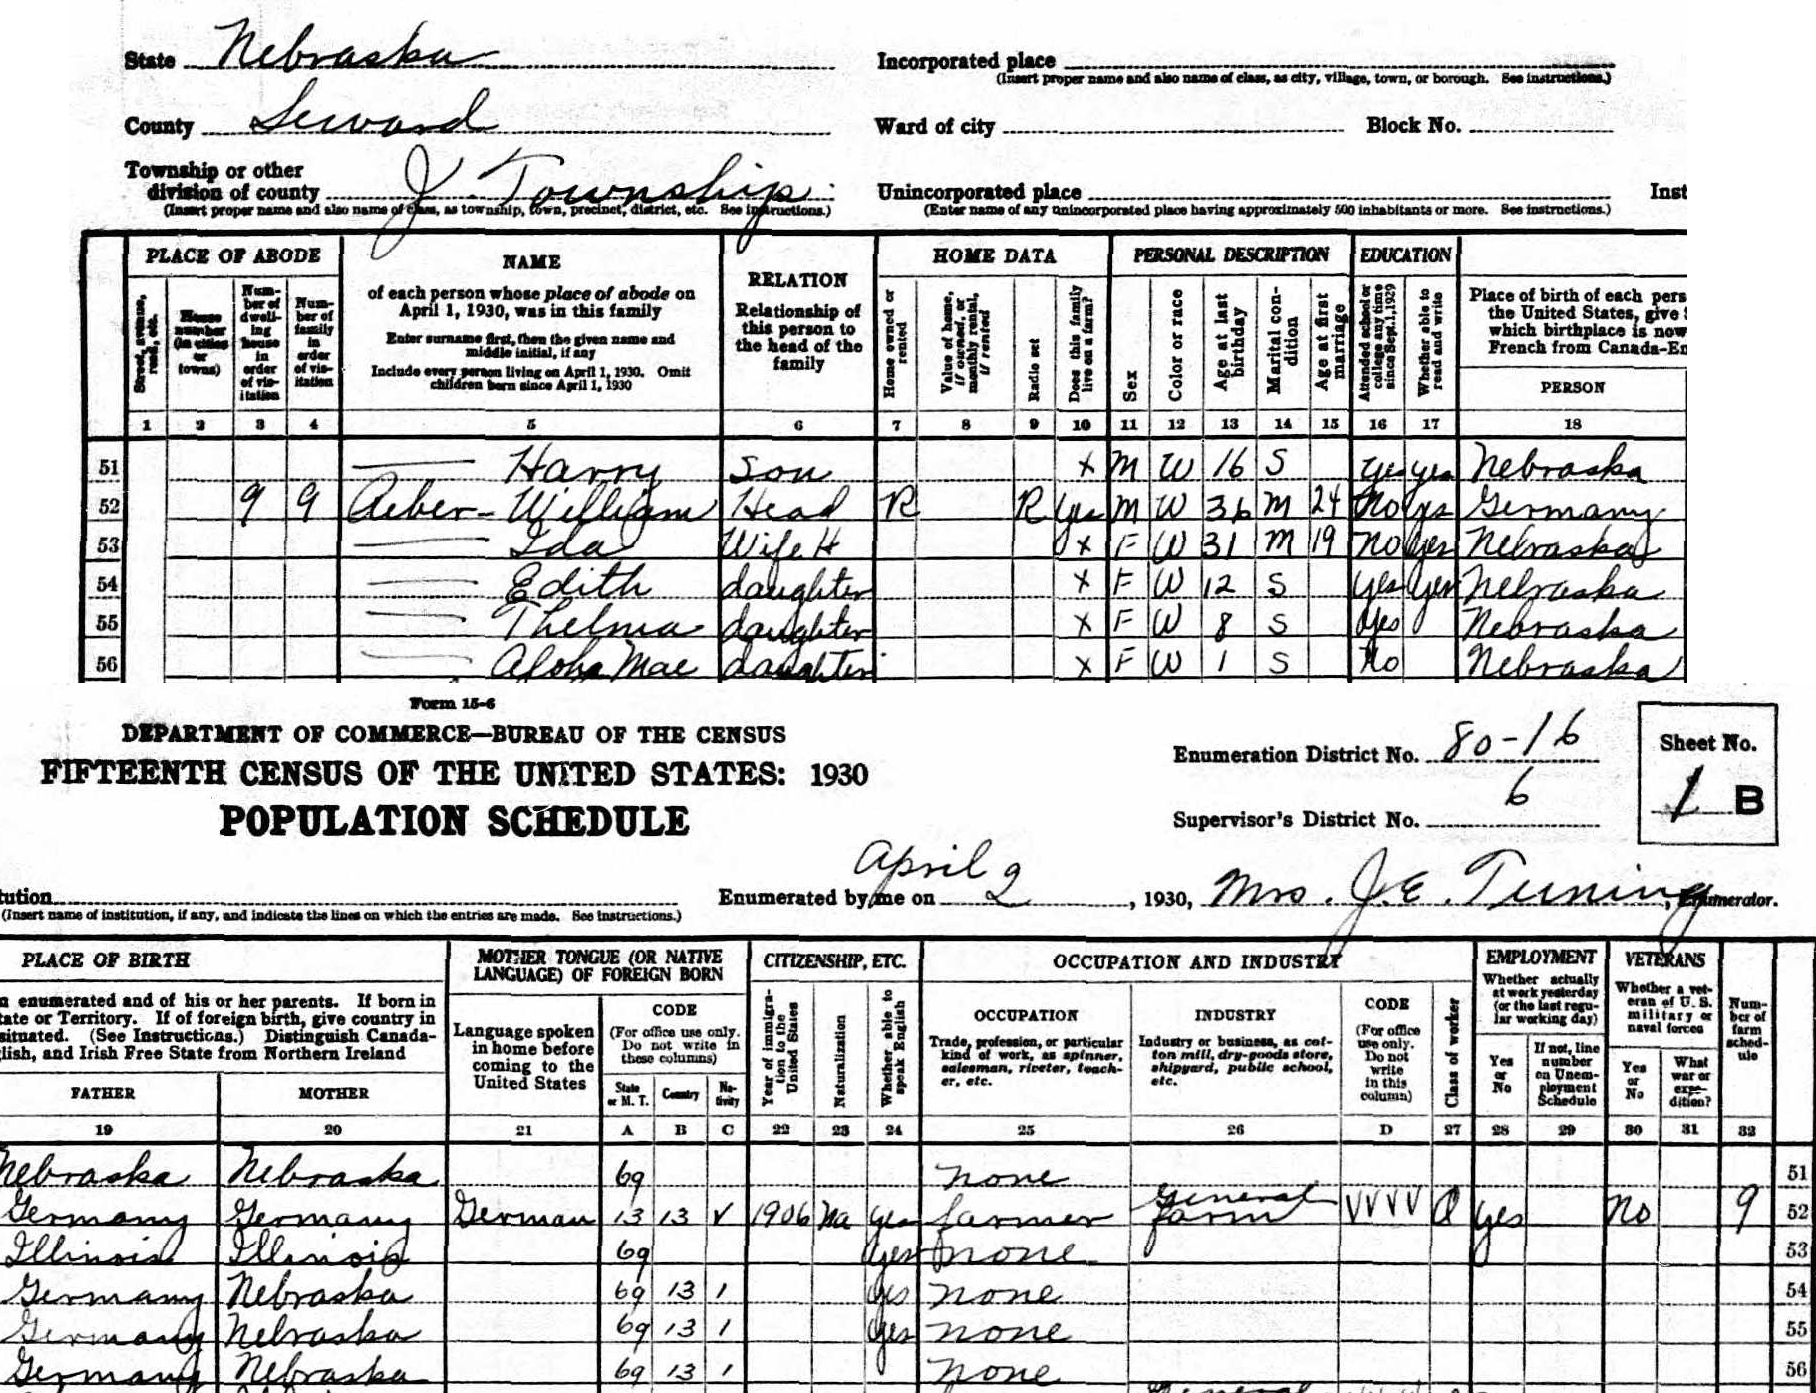 State Nebraska
Incorporated place
(Insert proper name and also name of class, as city, village, town, or borough. See instructions.)
County Seward
Ward of city Block No.
Township or other
division of county J Township
(Insert proper name and also name of class, as township, town, precinct, district, etc. See instructions.)
Unincorporated place Inst
(Enter name of any unincorporated place having approximately 500 inhabitants or more. See instructions.)
PLACE OF ABODE
Street, avenue, road, etc.
House number (in cities or towns)
Num-
ber of
dwell-
ing
house
in
order
of vis-
itation
Num-
ber of
family
in
order
of vis-
itation
NAME
of each person whose place of abode on
April 1, 1930, was in this family
Enter surname first, then the given name and
middle initial, if any
Include every person living on April 1, 1930. Omit
children born since April 1, 1930
RELATION
Relationship of
this person to
the head of the
family
HOME DATA
Home owned or
rented
Value of home,
if owned, or
monthly rental,
if rented
Radio set
Does this family
live on a farm?
PERSONAL DESCRIPTION
Sex
Color or race
Age at last
birthday
Marital con-
dition
Age at first
marriage
EDUCATION
Attended school or
college any time
since Sept. 1, 1929
Whether able to
read and write
Place of birth of each pers
the United States, give
which birthplace is now
French from Canada-En
PERSON
1 2 3 4 5 6 7 8 9 10 11 12 13 14 15 16 17 18
51 Harry Son x M W 16 S yes yes Nebraska
52 9 9 William Head R R Yes M W 36 M 24 No yes Germany
53 Ida Wife H x F W 31 M 19 No yes Nebraska
54 Edith daughter x F W 12 S yes yes Nebraska
55 Thelma daughter x F W 8 S yes Nebraska
56 Aloha Mae daughter x F W 1 S No Nebraska
Form 15-6
DEPARTMENT OF COMMERCE—BUREAU OF THE CENSUS
FIFTEENTH CENSUS OF THE UNITED STATES: 1930
POPULATION SCHEDULE
Enumeration District No. 80-16
Supervisor's District No. 6
Sheet No.
1 B
tution
(Insert name of institution, if any, and indicate the lines on which the entries are made. See instructions.)
Enumerated by me on April 2, 1930, Mrs. J. E. Tuning, Enumerator.
PLACE OF BIRTH
n enumerated and of his or her parents. If born in
tate or Territory. If of foreign birth, give country in
situated. (See Instructions.) Distinguish Canada-
lish, and Irish Free State from Northern Ireland
FATHER MOTHER
MOTHER TONGUE (OR NATIVE
LANGUAGE) OF FOREIGN BORN
Language spoken
in home before
coming to the
United States
CODE
(For office use only.
Do not write in
these columns)
State
or M. T.
Country
Na-
tivity
CITIZENSHIP, ETC.
Year of immigra-
tion to the
United States
Naturalization
Whether able to
speak English
OCCUPATION AND INDUSTRY
OCCUPATION
Trade, profession, or particular
kind of work, as spinner,
salesman, riveter, teach-
er, etc.
INDUSTRY
Industry or business, as cot-
ton mill, dry-goods store,
shipyard, public school,
etc.
CODE
(For office
use only.
Do not
write
in this
column)
Class of worker
EMPLOYMENT
Whether actually
at work yesterday
(or the last regu-
lar working day)
Yes
or
No
If not, line
number
on Unem-
ployment
Schedule
VETERANS
Whether a vet-
eran of U. S.
military or
naval forces
Yes
or
No
What
war or
expe-
dition?
Num-
ber of
farm
sched-
ule
19 20 21 A B C 22 23 24 25 26 D 27 28 29 30 31 32
Nebraska Nebraska 69 none 51
Germany Germany German 13 13 V 1906 Na yes farmer General farm VVVV O yes No 9 52
Illinois Illinois 69 yes none 53
Germany Nebraska 69 13 1 yes none 54
Germany Nebraska 69 13 1 yes none 55
Germany Nebraska 69 13 1 none 56